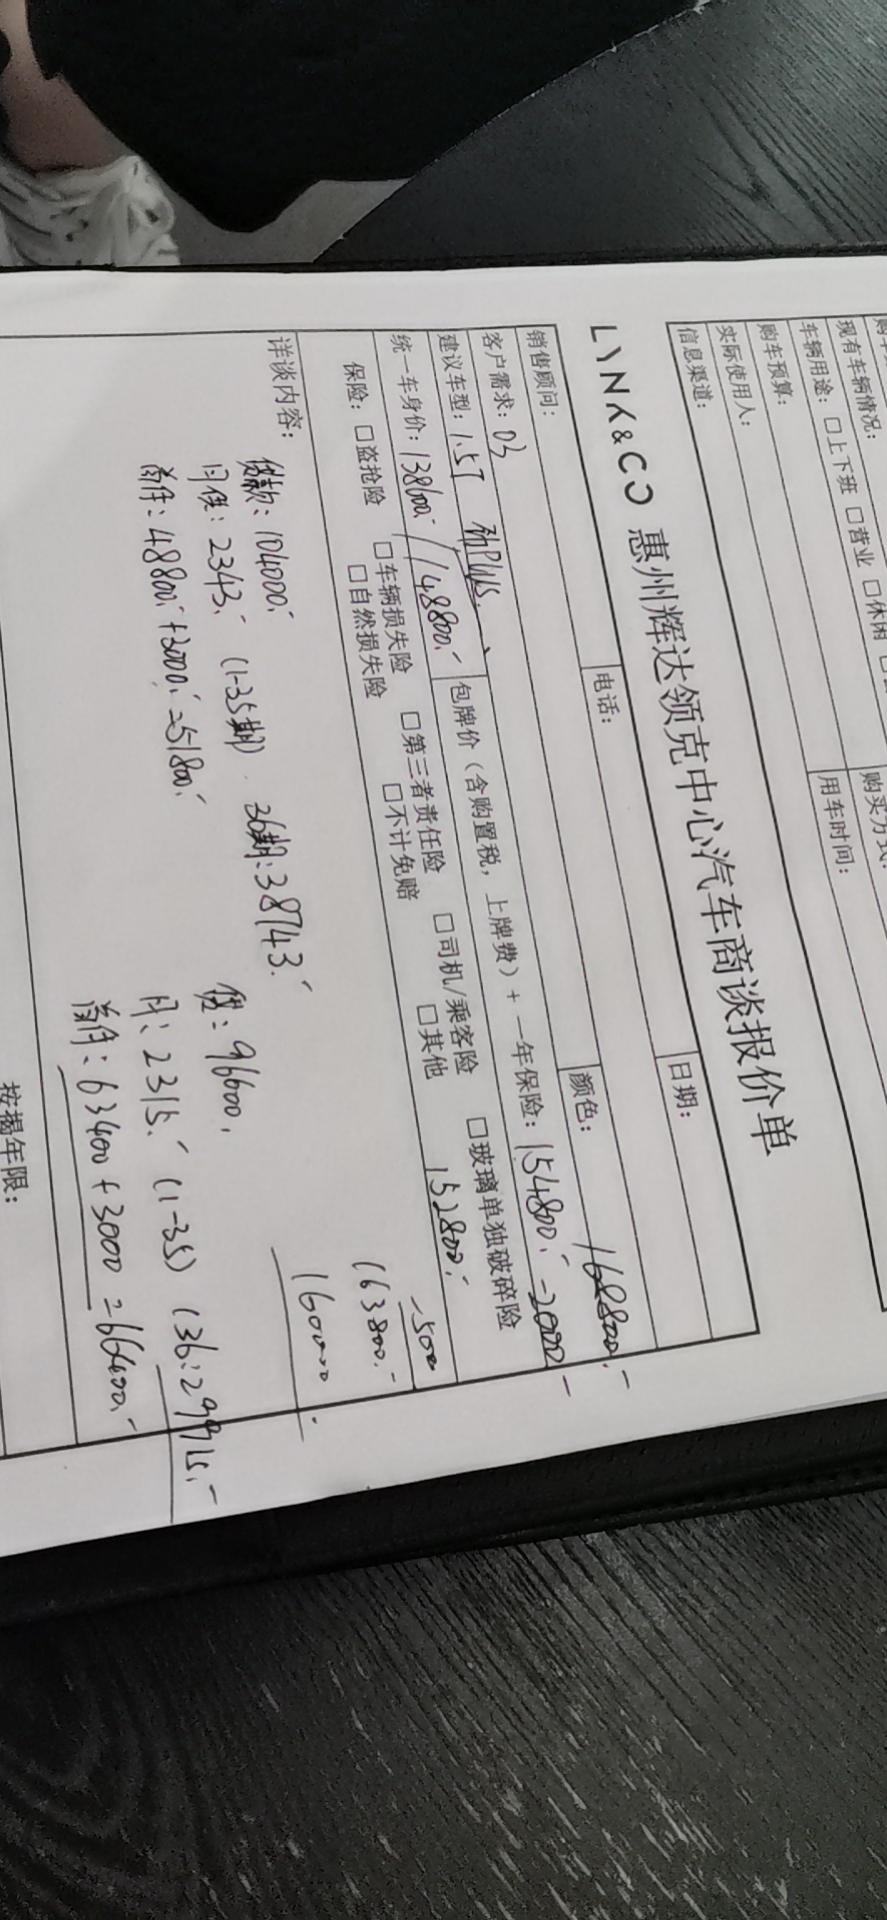 现有车辆情况:
车辆用途: □上下班 □营业 □休闲
购买方式:
购车预算:
用车时间:
实际使用人:
信息渠道:
LYNK&CO 惠州辉达领克中心汽车商谈报价单
日期:
销售顾问:
电话:
颜色:
168800.-
客户需求: 03
建议车型: 1.5T 劲PLUS.
统一车身价: 138600.- / 148800.-
包牌价（含购置税，上牌费）+ 一年保险: 154800.- -2000.-
保险: □盗抢险 □车辆损失险 □第三者责任险 □司机/乘客险 □玻璃单独破碎险
□自然损失险 □不计免赔 □其他
152800.-
-5000
163800.-
160000.
详谈内容:
贷款: 104000.-
月供: 2343.- (1-35期) 36期: 38743.-
首付: 48800.- + 3000.- = 51800.-
贷: 96600.
月: 2315.- (1-35) (36: 29715.-
首付: 63400 + 3000 = 66400.-
按揭年限: